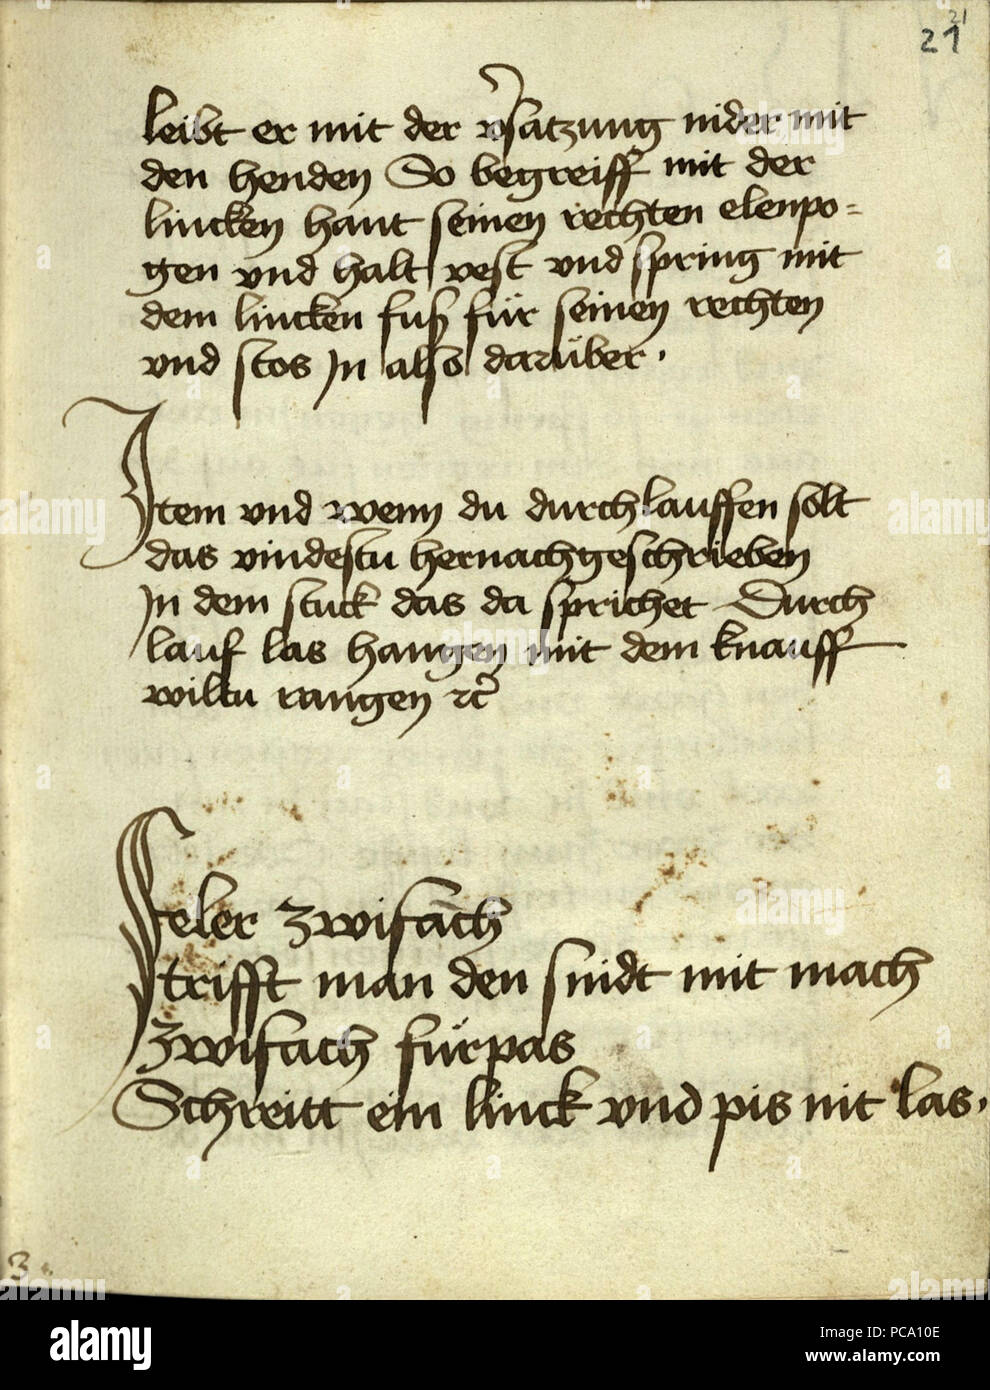 21
21
leibt er mit der v̾satzung nider mit
den henden So begreiff mit der
lincken hant seinen rechten elenpo=
gen vnd halt vest vnd spring mit
dem lincken fuß für seinen rechten
vnd stos Jn also darüber .
Item vnd wenn du durchlauffen solt
das vindestu hernachgeschrieben
Jn dem stuck das da sprichet Durch
lauf las hangen mit dem knauff
wiltu rangen ꝛc̾
Feler zwifach
trifft man den snidt mit mach
Zwifach fürpas
Schreitt ein linck vnd pis nit las .
3
alamy
Image ID: PCA10E
www.alamy.com